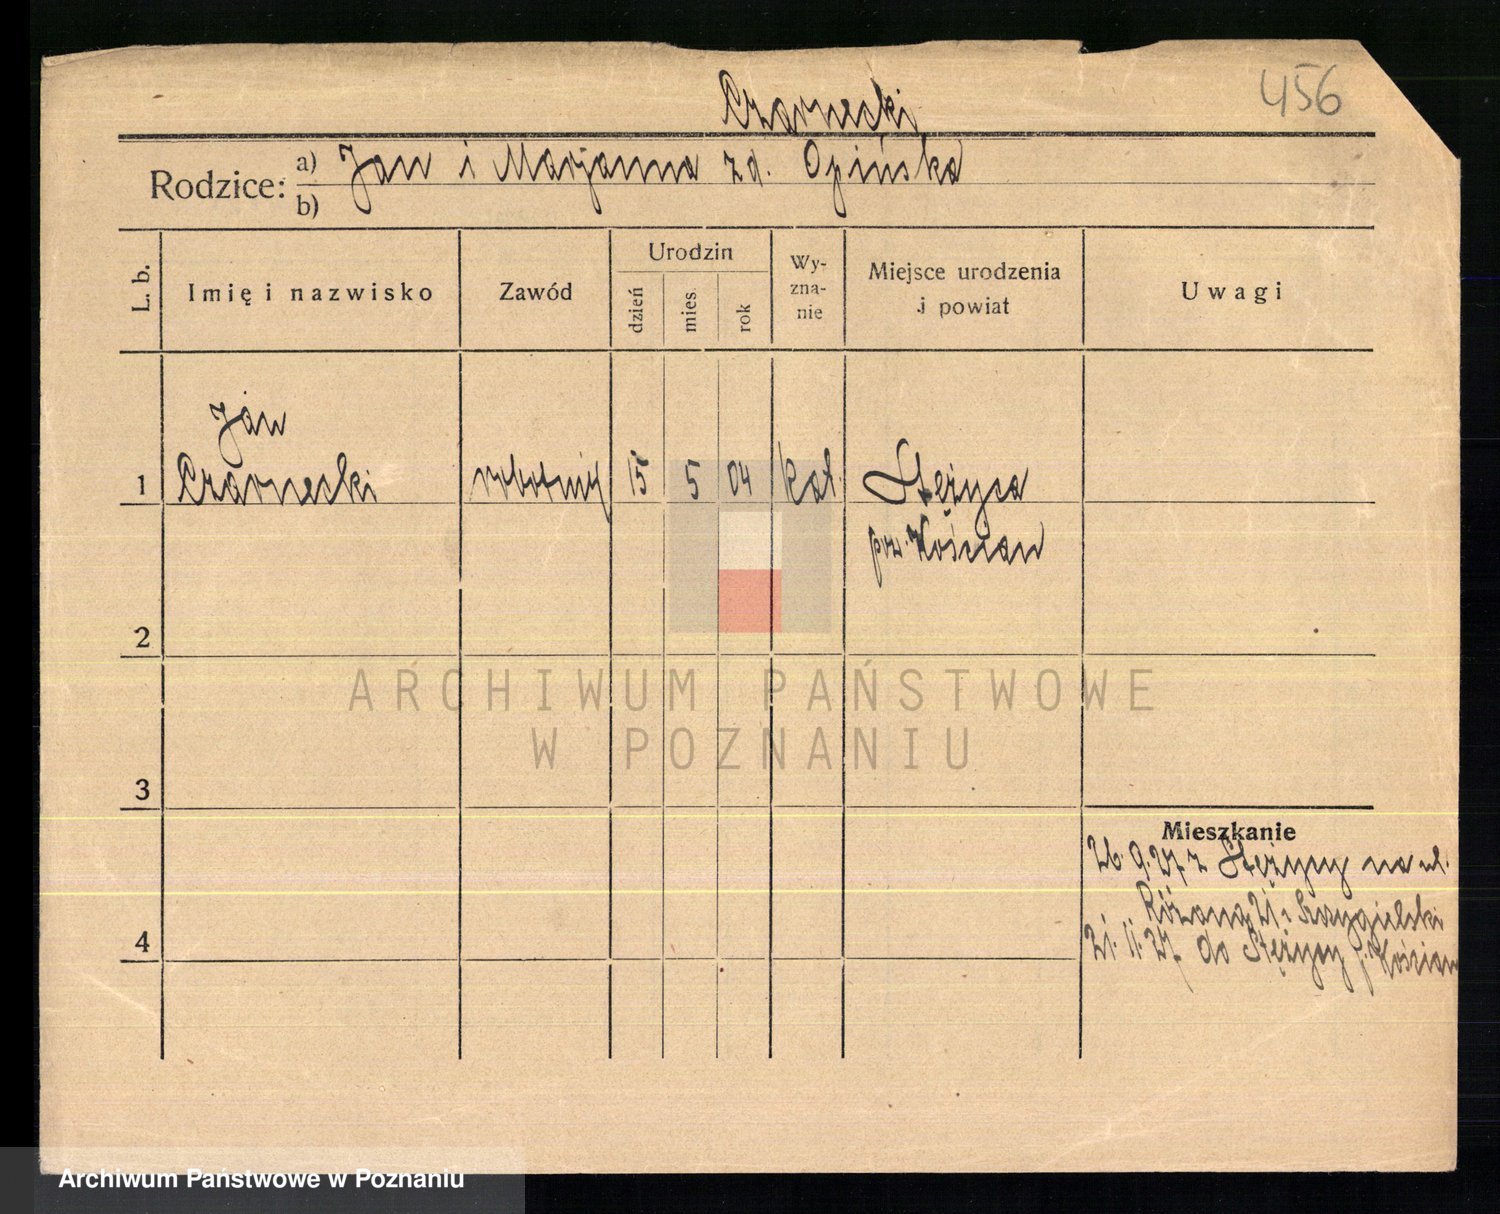 456
Czarnecki
Rodzice: a) Jan i Marjanna zd. Opińska
b)
L. b.
Imię i nazwisko
Zawód
Urodzin
dzień
mies.
rok
Wy-
zna-
nie
Miejsce urodzenia
i powiat
Uwagi
Jan
1 Czarnecki robotnik 15 5 04 kat. Stężyca
pow. Kościan
2
ARCHIWUM PAŃSTWOWE
W POZNANIU
3
Mieszkanie
26.9.27 z Stężycy na ul.
Różana 21
4
21.11.27 do Stężycy p. Kościan
Archiwum Państwowe w Poznaniu